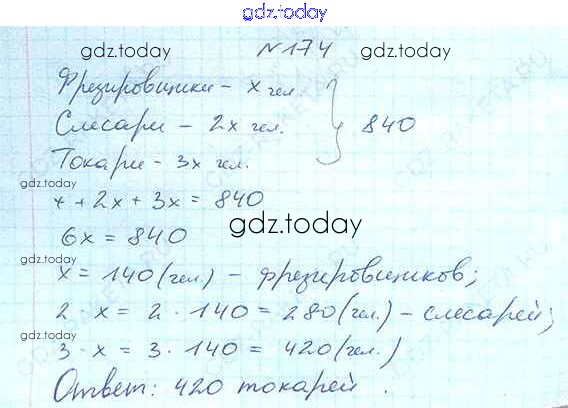 gdz.today
gdz.today N 174 gdz.today
Фрезировщики - x чел.
Слесари - 2x чел. } 840
Токари - 3x чел.
gdz.today
x + 2x + 3x = 840
6x = 840
gdz.today
x = 140 (чел.) - фрезировщиков;
2 · x = 2 · 140 = 280 (чел.) - слесарей;
gdz.today
3 · x = 3 · 140 = 420 (чел.)
Ответ: 420 токарей.